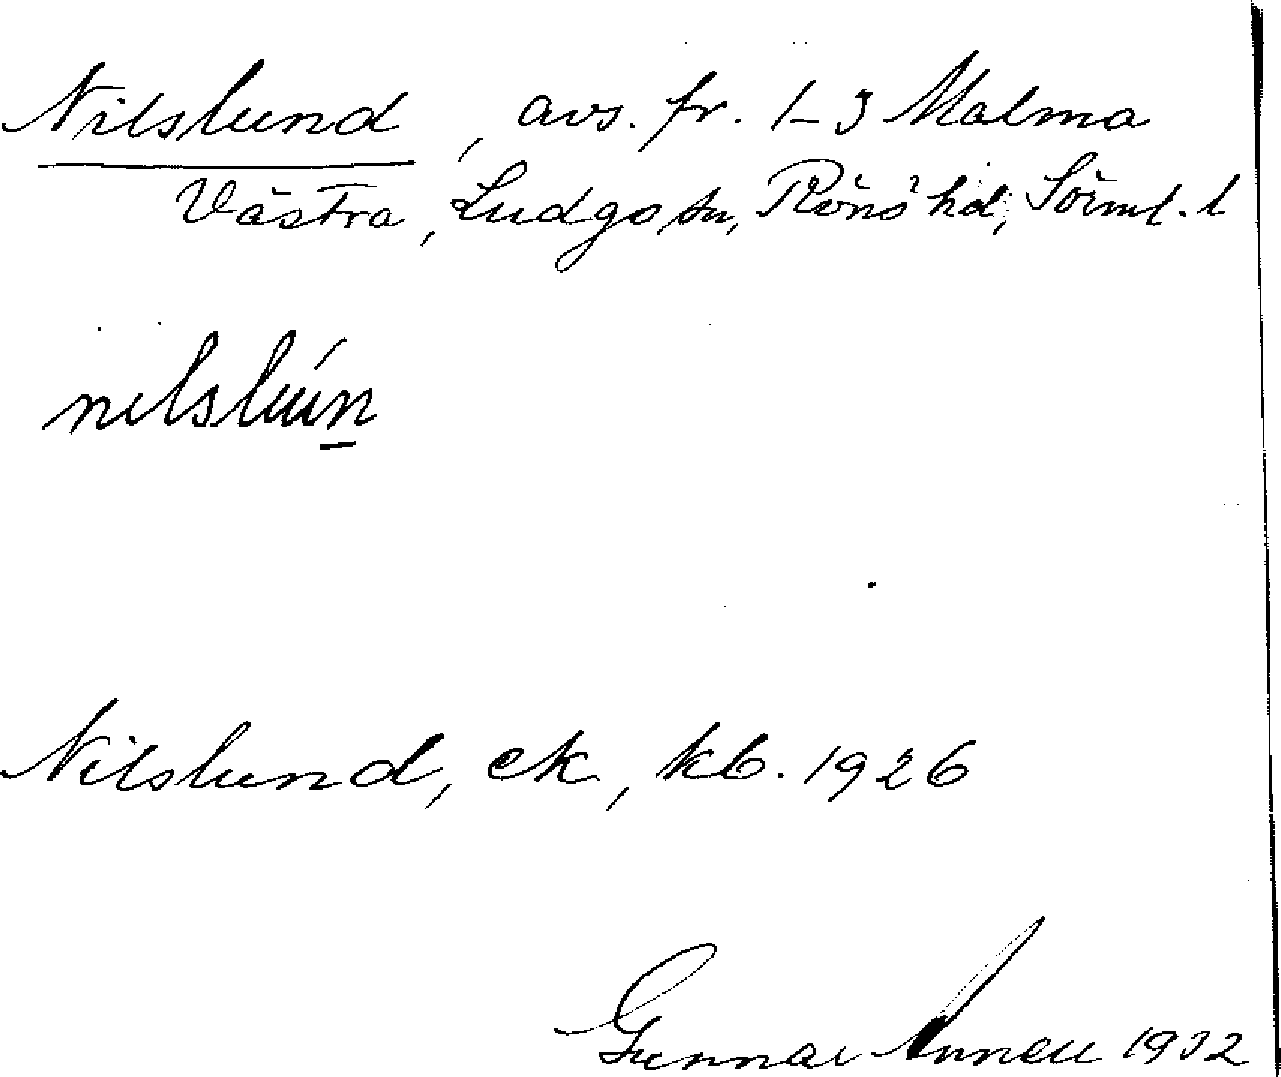 Nilslund, avs. fr. 1-3 Malma
Västra, Ludgo sn, Rönö hd, Sörml. l
nilslún
Nilslund, ek, kb. 1926
Gunnar 1932